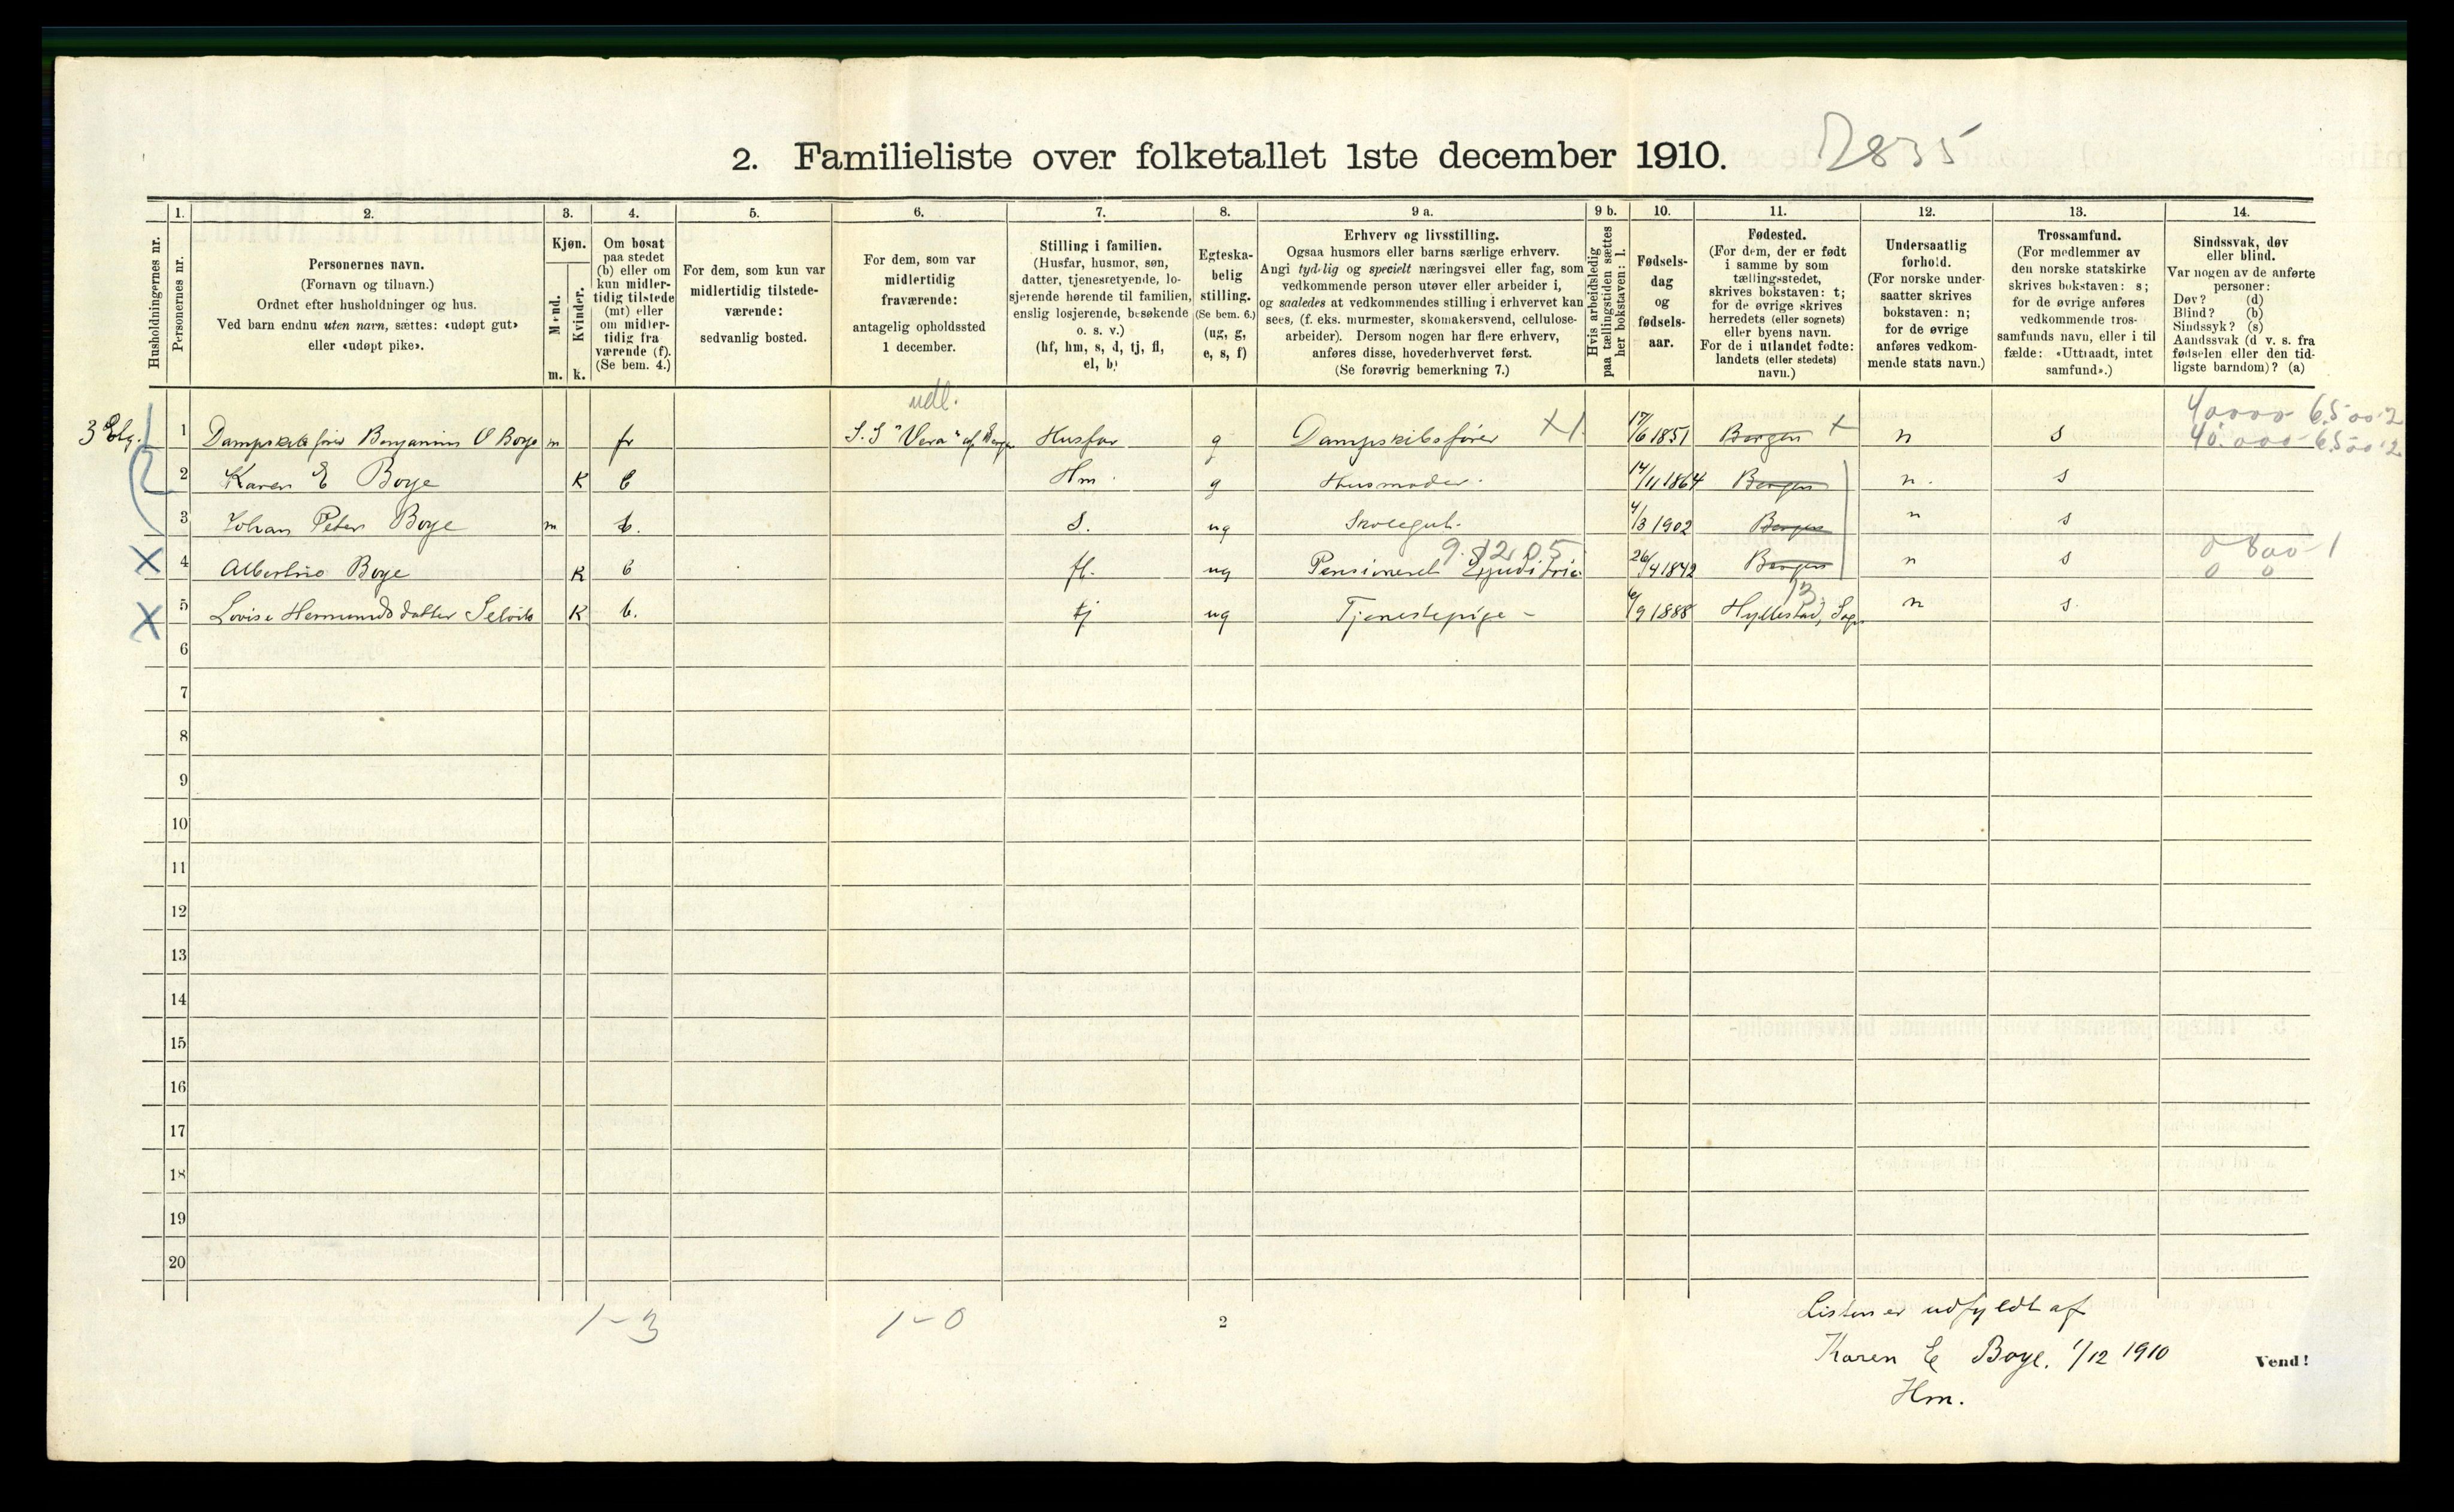 2. Familieliste over folketallet 1ste december 1910. 2835
Husholdningernes nr.
1. Personernes nr.
2. Personernes navn.
(Fornavn og tilnavn.)
Ordnet efter husholdninger og hus.
Ved barn endnu uten navn, sættes: «udøpt gut»
eller «udøpt pike».
3. Kjøn.
Mænd. m.
Kvinder. k.
4. Om bosat
paa stedet
(b) eller om
kun midler-
tidig tilstede
(mt) eller
om midler-
tidig fra
værende (f).
(Se bem. 4.)
5. For dem, som kun var
midlertidig tilstede-
værende:
sedvanlig bosted.
6. For dem, som var
midlertidig
fraværende:
antagelig opholdssted
1 december.
7. Stilling i familien.
(Husfar, husmor, søn,
datter, tjenestyende, lo-
sjerende hørende til familien,
enslig losjerende, besøkende
o. s. v.)
(hf, hm, s, d, tj, fl,
el, b)
8. Egteska-
belig
stilling.
(Se bem. 6.)
(ug, g,
e, s, f)
9 a. Erhverv og livsstilling.
Ogsaa husmors eller barns særlige erhverv.
Angi tydelig og specielt næringsvei eller fag, som
vedkommende person utøver eller arbeider i,
og saaledes at vedkommendes stilling i erhvervet kan
sees, (f. eks. murmester, skomakersvend, cellulose-
arbeider). Dersom nogen har flere erhverv,
anføres disse, hovederhvervet først.
(Se forøvrig bemerkning 7.)
9 b. Hvis arbeidsledig
paa tællingstiden sættes
her bokstaven: l.
10. Fødsels-
dag
og
fødsels-
aar.
11. Fødested.
(For dem, der er født
i samme by som
tællingsstedet,
skrives bokstaven: t;
for de øvrige skrives
herredets (eller sognets)
eller byens navn.
For de i utlandet fødte:
landets (eller stedets)
navn.)
12. Undersaatlig
forhold.
(For norske under-
saatter skrives
bokstaven: n;
for de øvrige
anføres vedkom-
mende stats navn.)
13. Trossamfund.
(For medlemmer av
den norske statskirke
skrives bokstaven: s;
for de øvrige anføres
vedkommende tros-
samfunds navn, eller i til
fælde: «Uttraadt, intet
samfund».)
14. Sindssvak, døv
eller blind.
Var nogen av de anførte
personer:
Døv? (d)
Blind? (b)
Sindssyk? (s)
Aandssvak (d v. s. fra
fødselen eller den tid-
ligste barndom)? (a)
udl. 40000 6500 2
3 Etg. 1 Dampskibsfører Benjamin O Boye m fr S.S "Vera" af Bergen Husfar g Dampskibsfører X1 17/6 1851 Bergen + n s 40.000 6500 2
2 Karen E Boye K b Hm. g Husmoder. 14/11 1864 Bergen n. s
3 Johan Peter Boye m b. S. ug Skolegut. 4/3 1902 Bergen n s
9.1205 0 800 1
4 Albertine Boye K b fl. ug Pensioneret 26/4 1842 Bergen n s 0 0
13.
5 Lovise Hermundsdatter Selvik K b. tj ug Tjenestepige - 6/9 1888 Hyllestad, Sogn n s.
6
7
8
9
10
11
12
13
14
15
16
17
18
19
20
1-3 1-0 2
Listen er udfyldt af
Karen E Boye. 1/12 1910
Hm.
Vend!